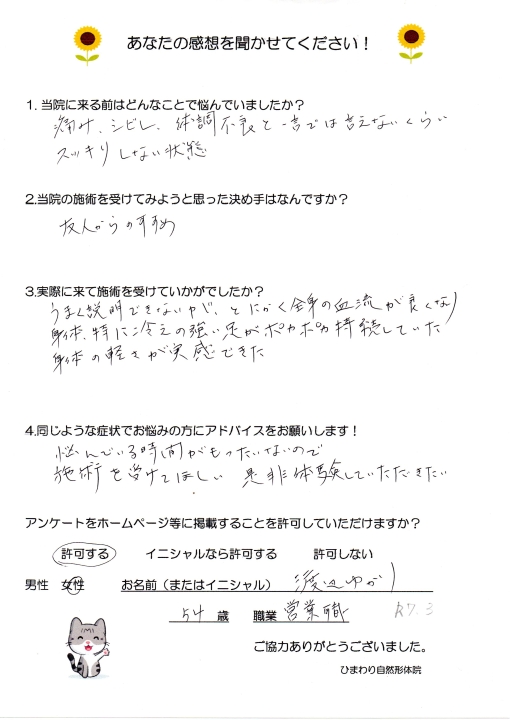 あなたの感想を聞かせてください！
1. 当院に来る前はどんなことで悩んでいましたか？
痛み、シビレ、体調不良と一言では言えないくらい
スッキリしない状態
2.当院の施術を受けてみようと思った決め手はなんですか？
友人からのすすめ
3.実際に来て施術を受けていかがでしたか？
うまく説明できないが、とにかく全身の血流が良くなり
身体、特に冷えの強い足がポカポカ持続していた
身体の軽さが実感できた
4.同じような症状でお悩みの方にアドバイスをお願いします！
悩んでいる時間がもったいないので
施術を受けてほしい 是非体験していただきたい
アンケートをホームページ等に掲載することを許可していただけますか？
許可する イニシャルなら許可する 許可しない
男性 女性 お名前（またはイニシャル） 渡辺ゆかり
54 歳 職業 営業職 R7.3
ご協力ありがとうございました。
ひまわり自然形体院